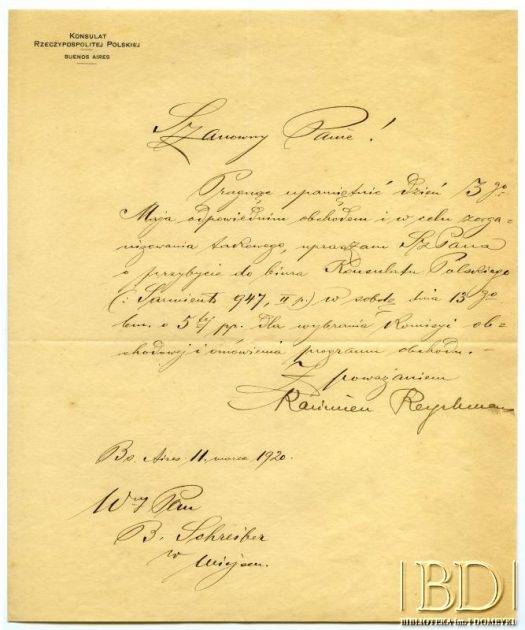 KONSULAT
RZECZYPOSPOLITEJ POLSKIEJ
BUENOS AIRES
Szanowny Panie!
Pragnąc upamiętnić dzień 3go
Maja odpowiednim obchodem i w celu zorga-
nizowania takowego, upraszam Sz Pana
o przybycie do biura Konsulatu Polskiego
(: Sarmiento 947, II p.) w sobotę dnia 13 go
bm. o 5tej pp. dla wybrania Komisyi ob-
chodowej i omówienia programu obchodu. -
Z poważaniem
Kazimierz Reychman
Bs. Aires 11. marca 1920.
Wny Pan
B. Schreiber
w
miejscu.
|BD|
BIBLIOTEKA im. I DOMEYKI